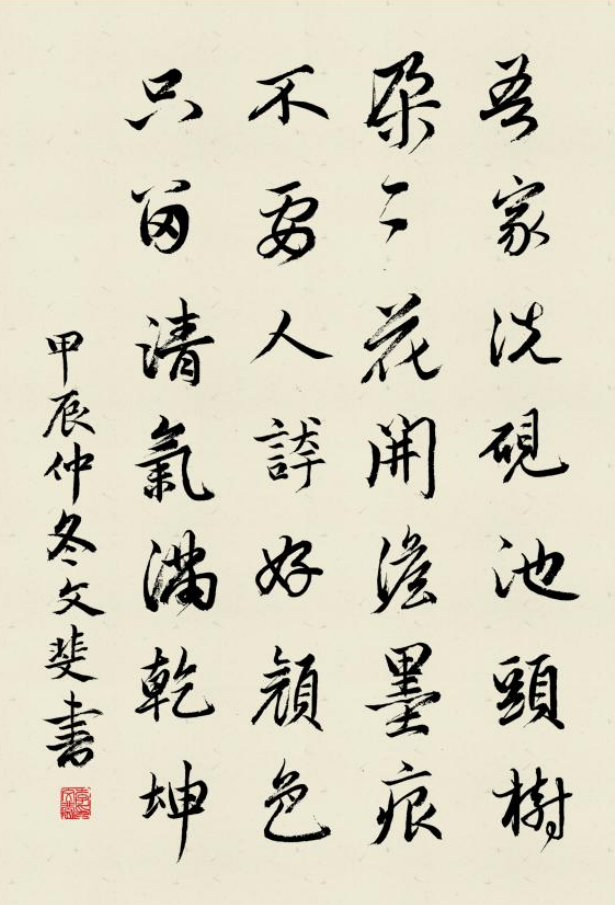 吾家洗硯池頭樹
朵〻花開澹墨痕
不要人誇好顔色
只留清氣滿乾坤
甲辰仲冬文斐書